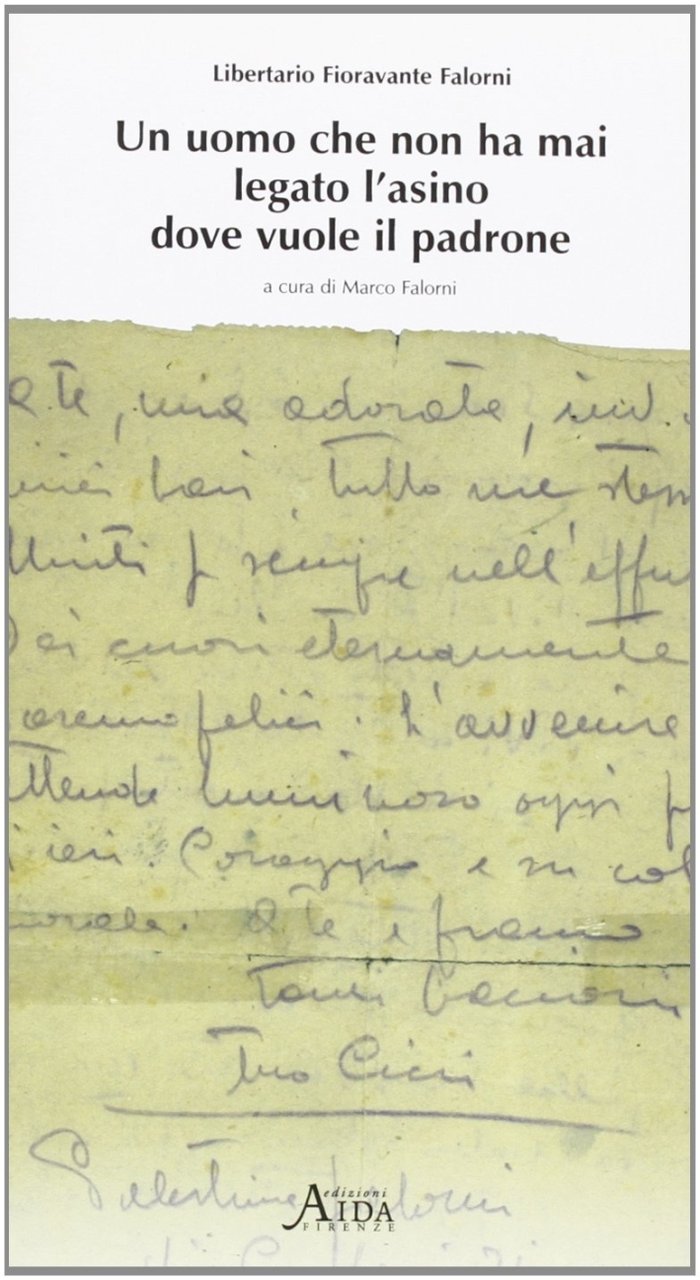 Libertario Fioravante Falorni
Un uomo che non ha mai
legato l'asino
dove vuole il padrone
a cura di Marco Falorni
a te, mia adorata,
miei baci, tutto me stess
Uniti p sempre nell'effu
Dei cuori eternamente
aremo felici. L'avvenire
ttende luminoso oggi p
ieri. Coraggio e su col
morale. A te e franco
tanti bacioni
tuo Cicci
Palestina Falorni
edizioni
AIDA
FIRENZE